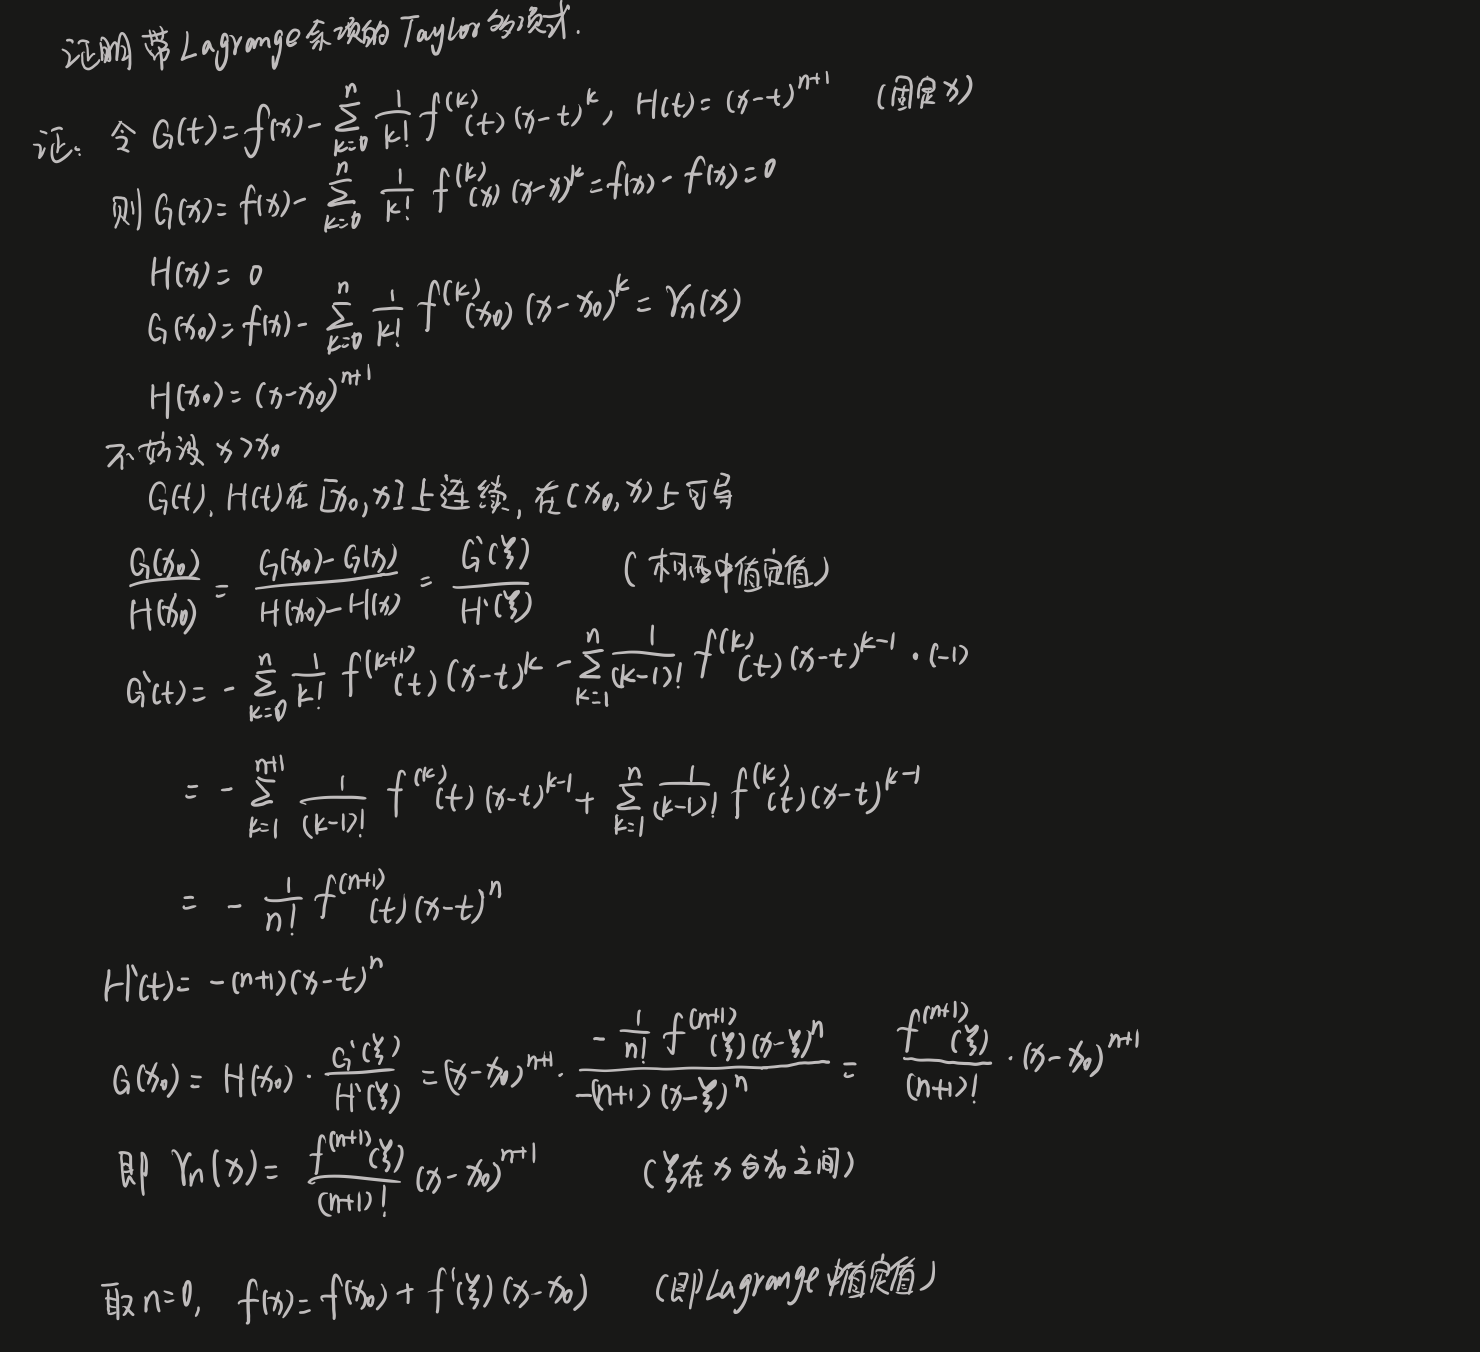 证明带Lagrange余项的Taylor多项式.
证: 令 G(t)=f(x)-∑_{k=0}^{n} \frac{1}{k!} f^{(k)}(t)(x-t)^k, H(t)=(x-t)^{n+1} (固定x)
则 G(x)=f(x)-∑_{k=0}^{n} \frac{1}{k!} f^{(k)}(x)(x-x)^k=f(x)-f(x)=0
H(x)=0
G(x_0)=f(x)-∑_{k=0}^{n} \frac{1}{k!} f^{(k)}(x_0)(x-x_0)^k=r_n(x)
H(x_0)=(x-x_0)^{n+1}
不妨设 x>x_0
G(t), H(t)在[x_0,x]上连续, 在(x_0,x)上可导
\frac{G(x_0)}{H(x_0)}=\frac{G(x_0)-G(x)}{H(x_0)-H(x)}=\frac{G'(ξ)}{H'(ξ)} (柯西中值定值)
G'(t)=-∑_{k=0}^{n} \frac{1}{k!} f^{(k+1)}(t)(x-t)^k-∑_{k=1}^{n} \frac{1}{(k-1)!} f^{(k)}(t)(x-t)^{k-1}·(-1)
=-∑_{k=1}^{n+1} \frac{1}{(k-1)!} f^{(k)}(t)(x-t)^{k-1}+∑_{k=1}^{n} \frac{1}{(k-1)!} f^{(k)}(t)(x-t)^{k-1}
=-\frac{1}{n!} f^{(n+1)}(t)(x-t)^n
H'(t)=-(n+1)(x-t)^n
G(x_0)=H(x_0)·\frac{G'(ξ)}{H'(ξ)}=(x-x_0)^{n+1}·\frac{-\frac{1}{n!} f^{(n+1)}(ξ)(x-ξ)^n}{-(n+1)(x-ξ)^n}=\frac{f^{(n+1)}(ξ)}{(n+1)!}·(x-x_0)^{n+1}
即 r_n(x)=\frac{f^{(n+1)}(ξ)}{(n+1)!}(x-x_0)^{n+1} (ξ在x与x_0之间)
取n=0, f(x)=f(x_0)+f'(ξ)(x-x_0) (即Lagrange中值定值)